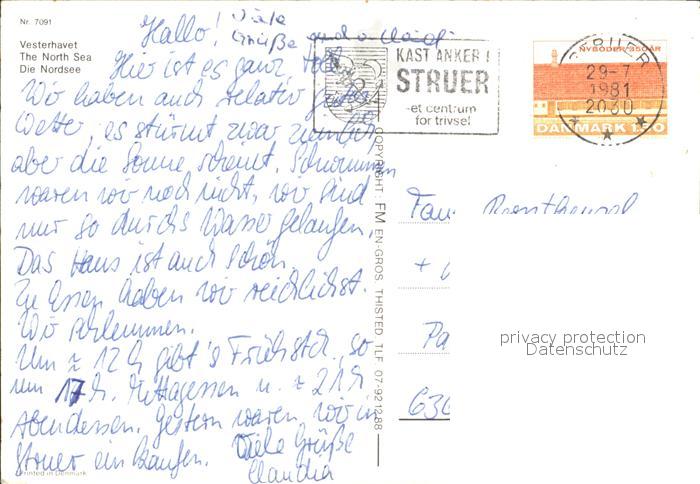 Nr. 7091
Vesterhavet
The North Sea
Die Nordsee
Hallo!
Viele
Grüße auch
Hier ist es ganz toll
Wir haben auch relativ gutes
Wetter, es stürmt zwar ziemlich,
aber die Sonne scheint. Schwimmen
waren wir noch nicht, wir sind
nur so durchs Wasser gelaufen.
Das Haus ist auch schön.
Zu Essen haben wir reichlichst.
Wir schlemmen.
Um ≈ 12 h gibt's Frühstck, so
um 17 h. Mittagessen u. ≈ 21 h
Abendessen. Gestern waren wir in
Struer einkaufen. Viele Grüße
Claudia
Printed in Denmark
COPYRIGHT: FM EN-GROS THISTED TLF 07-921288
KAST ANKER I
STRUER
-et centrum
for trivsel
NYBODER 350 ÅR
DANMARK
STRUER
29-7
1981
2030
Fam.
630
privacy protection
Datenschutz